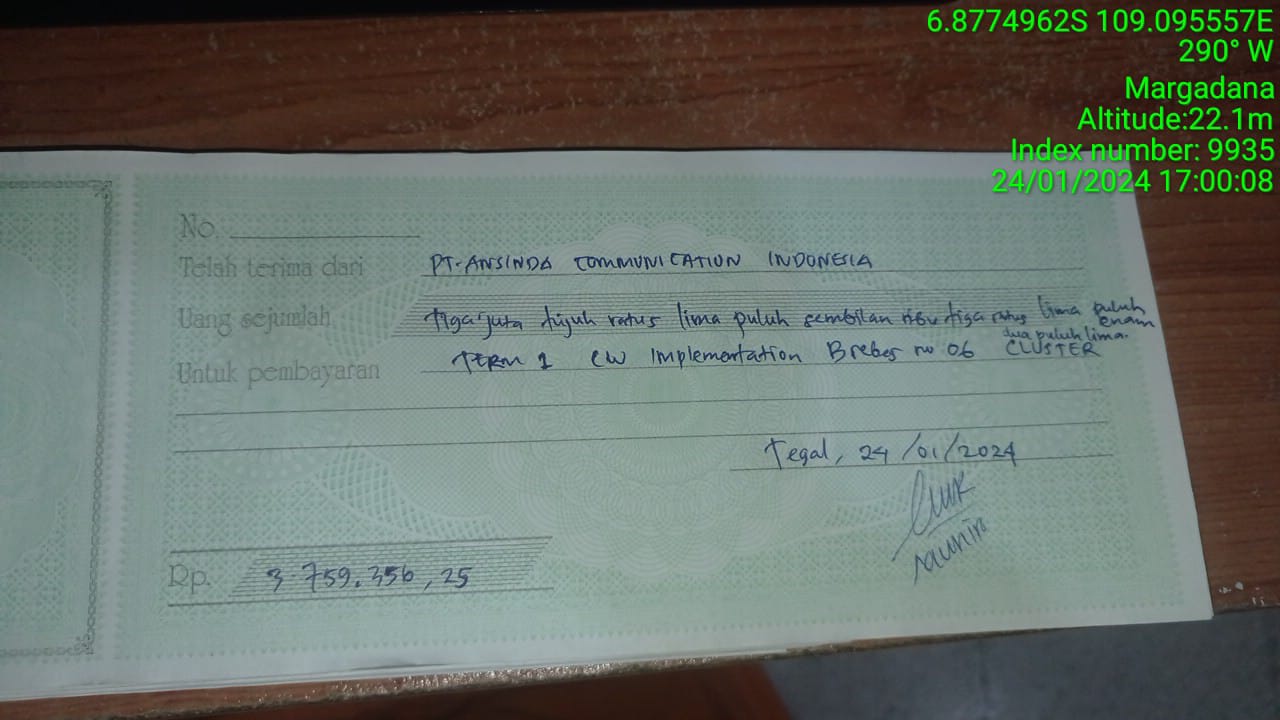 6.8774962S 109.095557E
290° W
Margadana
Altitude:22.1m
Index number: 9935
24/01/2024 17:00:08
No.
Telah terima dari PT. ANSINDA COMMUNICATION INDONESIA
Uang sejumlah tiga juta tujuh ratus lima puluh sembilan ribu tiga ratus lima puluh enam
dua puluh lima.
Untuk pembayaran TERM 1 CW Implementation Brebes no 06 CLUSTER
Tegal, 24/01/2024
Rp. 3.759.356,25